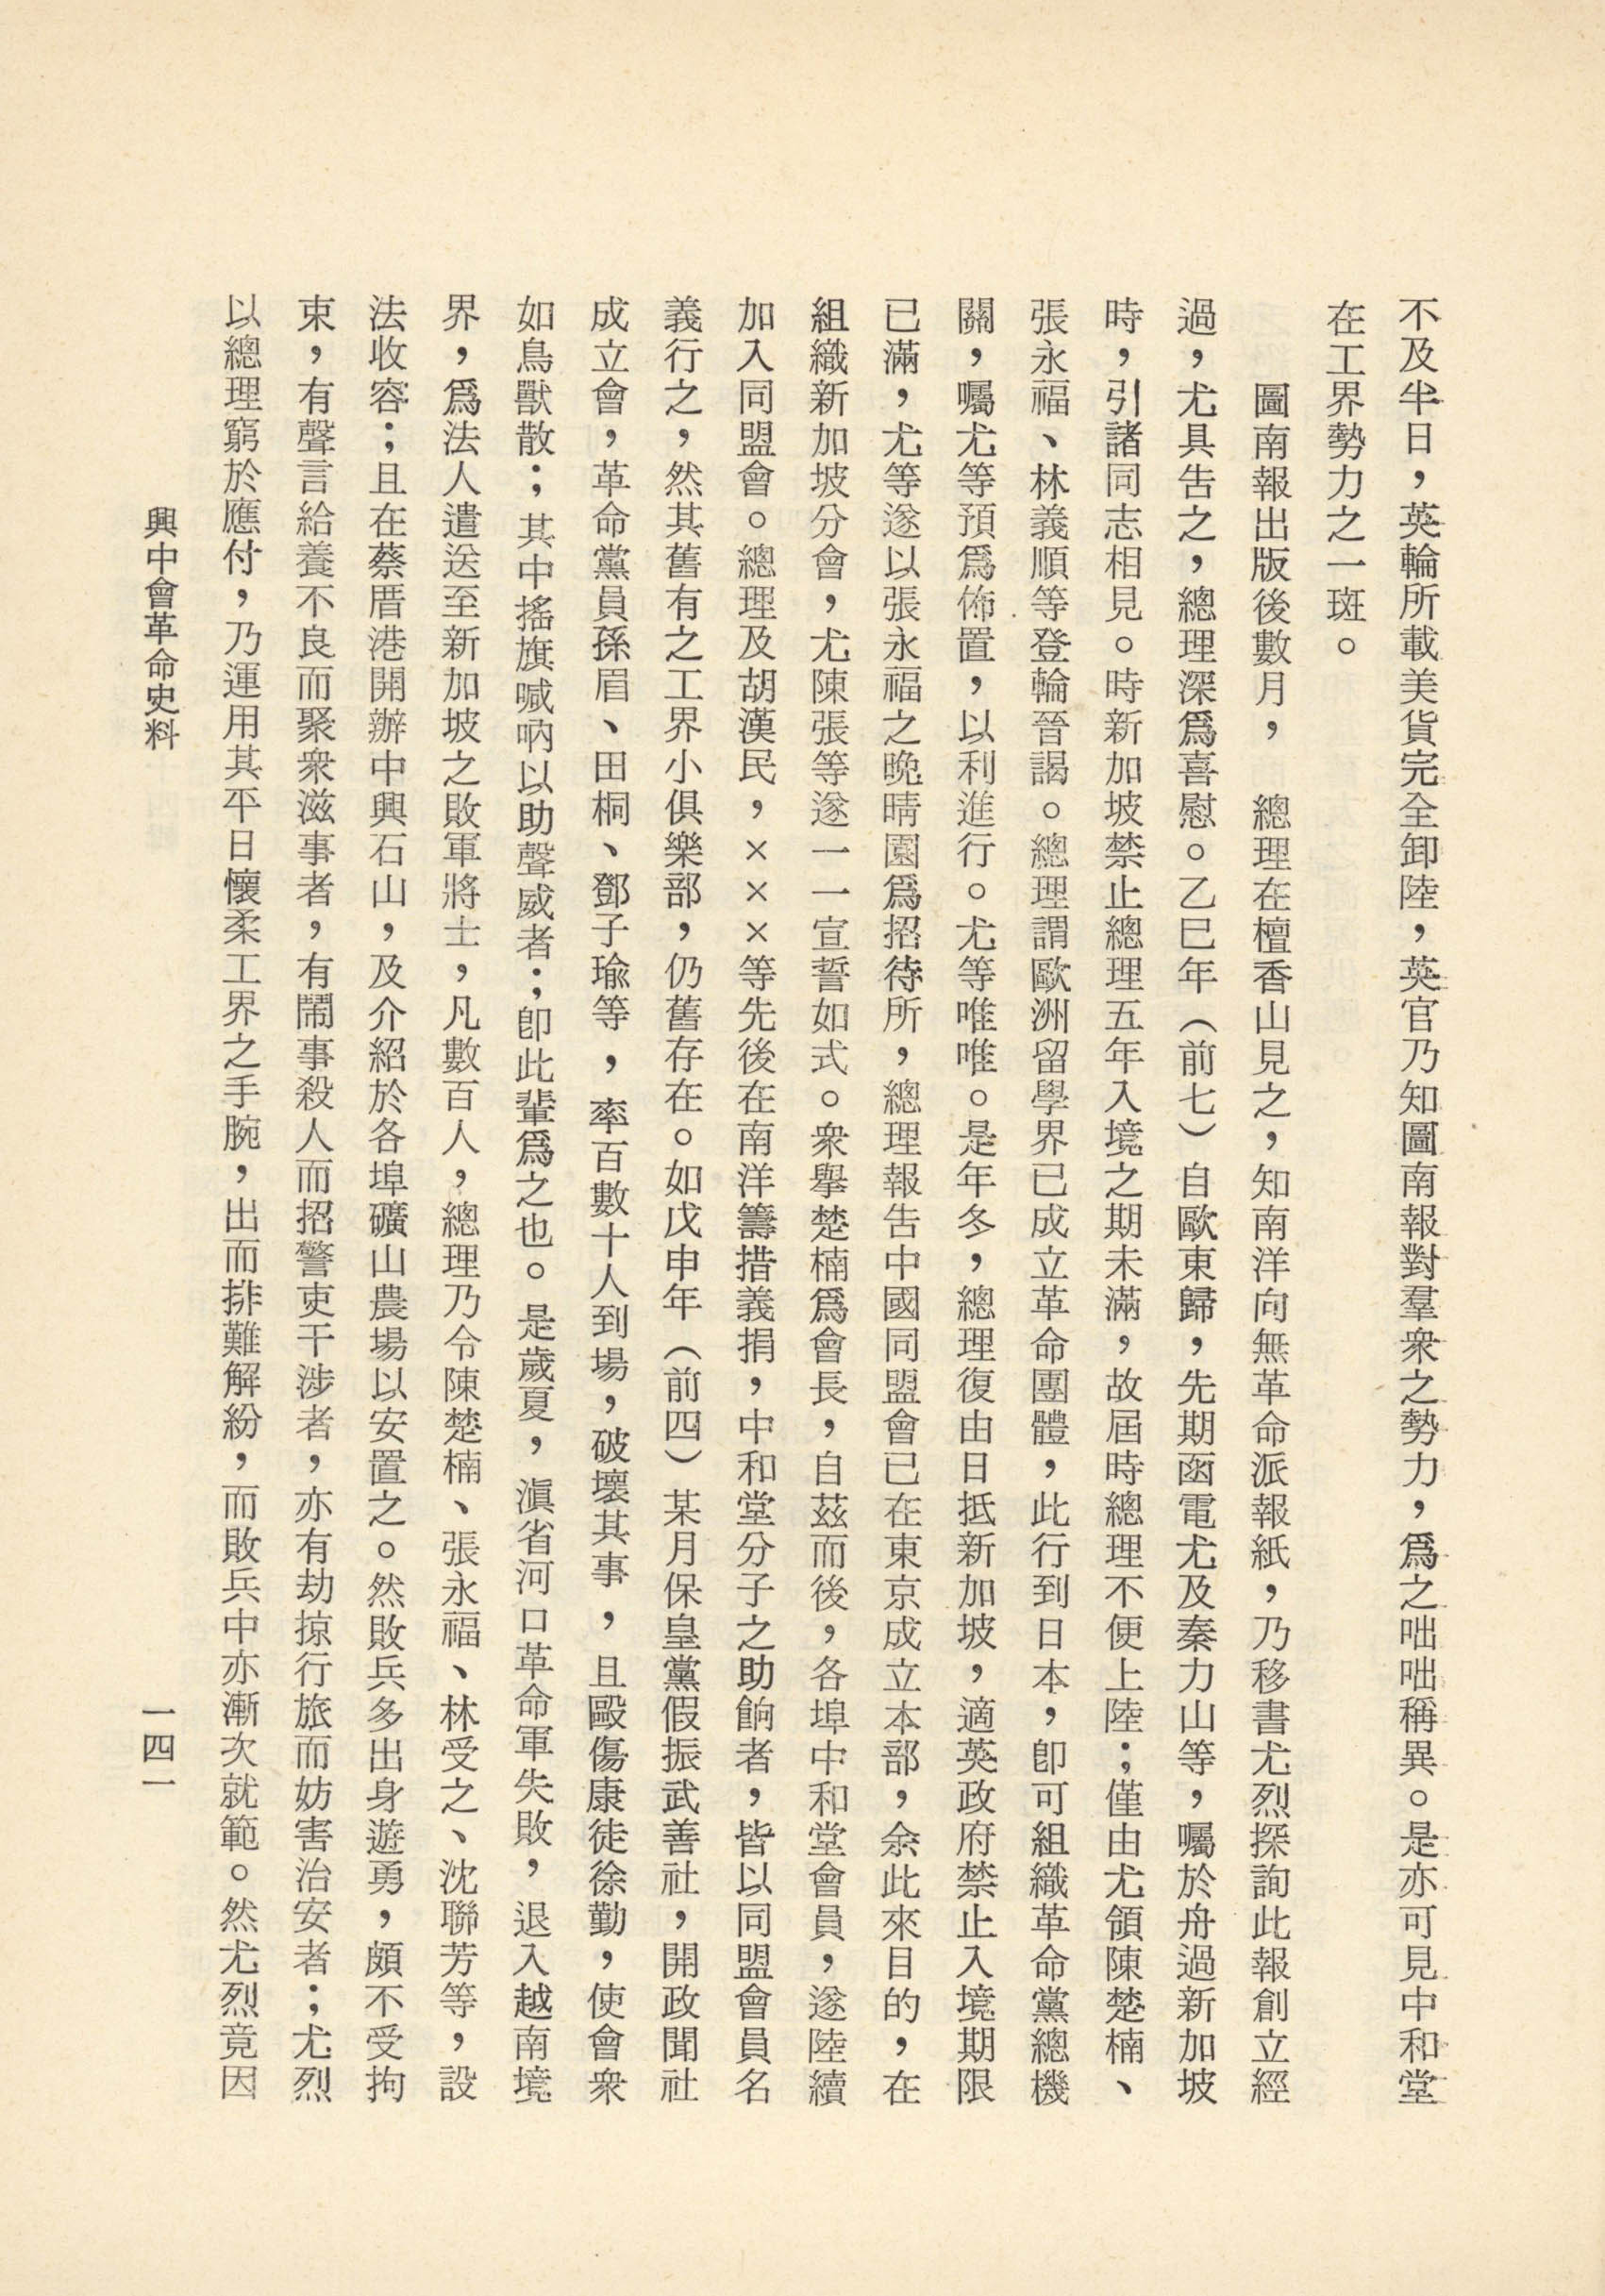 不及半日，英輪所載美貨完全卸陸，英官乃知圖南報對羣衆之勢力，爲之咄咄稱異。是亦可見中和堂
在工界勢力之一斑。
圖南報出版後數月，　總理在檀香山見之，知南洋向無革命派報紙，乃移書尤烈探詢此報創立經
過，尤具告之，總理深爲喜慰。乙巳年（前七）自歐東歸，先期函電尤及秦力山等，囑於舟過新加坡
時，引諸同志相見。時新加坡禁止總理五年入境之期未滿，故屆時總理不便上陸；僅由尤領陳楚楠、
張永福、林義順等登輪晉謁。總理謂歐洲留學界已成立革命團體，此行到日本，卽可組織革命黨總機
關，囑尤等預爲佈置，以利進行。尤等唯唯。是年冬，總理復由日抵新加坡，適英政府禁止入境期限
已滿，尤等遂以張永福之晚晴園爲招待所，總理報告中國同盟會已在東京成立本部，余此來目的，在
組織新加坡分會，尤陳張等遂一一宣誓如式。衆舉楚楠爲會長，自茲而後，各埠中和堂會員，遂陸續
加入同盟會。總理及胡漢民，×××等先後在南洋籌措義捐，中和堂分子之助餉者，皆以同盟會員名
義行之，然其舊有之工界小俱樂部，仍舊存在。如戊申年（前四）某月保皇黨假振武善社，開政聞社
成立會，革命黨員孫眉、田桐、鄧子瑜等，率百數十人到場，破壞其事，且毆傷康徒徐勤，使會衆
如鳥獸散；其中搖旗喊吶以助聲威者；卽此輩爲之也。是歲夏，滇省河口革命軍失敗，退入越南境
界，爲法人遣送至新加坡之敗軍將士，凡數百人，總理乃令陳楚楠、張永福、林受之、沈聯芳等，設
法收容；且在蔡厝港開辦中興石山，及介紹於各埠礦山農場以安置之。然敗兵多出身遊勇，頗不受拘
束，有聲言給養不良而聚衆滋事者，有鬧事殺人而招警吏干涉者，亦有劫掠行旅而妨害治安者；尤烈
以總理窮於應付，乃運用其平日懷柔工界之手腕，出而排難解紛，而敗兵中亦漸次就範。然尤烈竟因
興中會革命史料
一四一